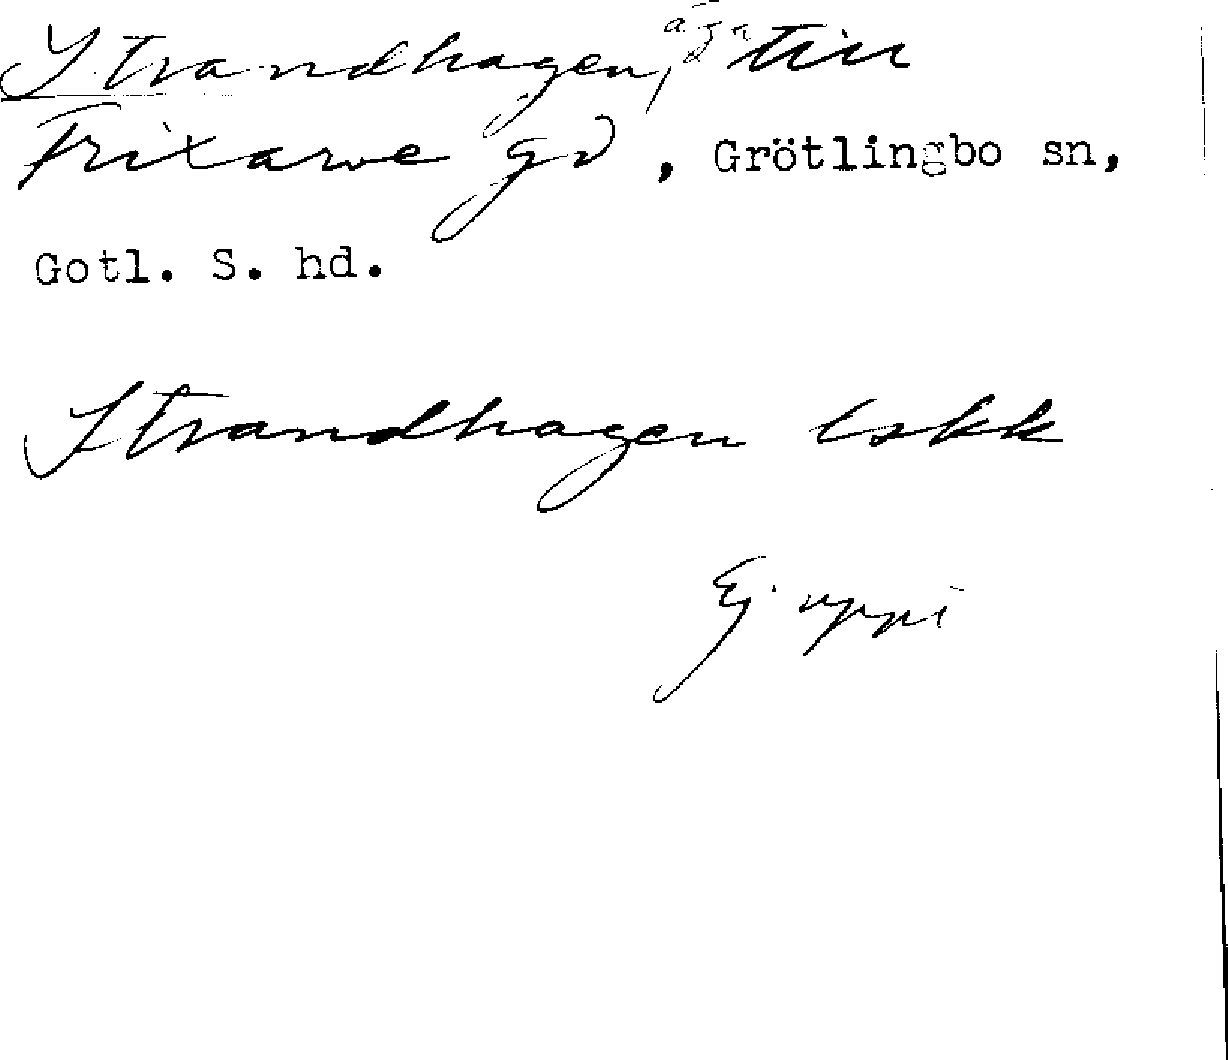 Strandhagen, äga till
Frixarve gd, Grötlingbo sn,
Gotl. S. hd.
Strandhagen Lskk
Ej uppi